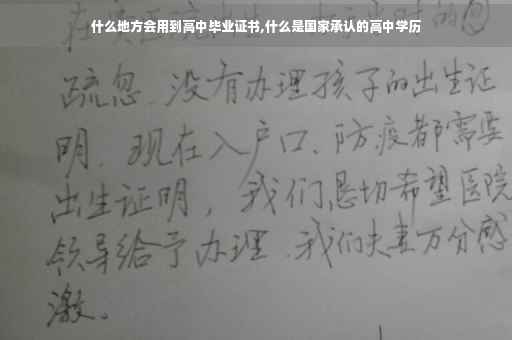 什么地方会用到高中毕业证书,什么是国家承认的高中学历
疏忽、没有办理孩子的出生证
明、现在入户口、防疫都需要
出生证明，我们恳切希望医院
领导给予办理、我们夫妻万分感
激。